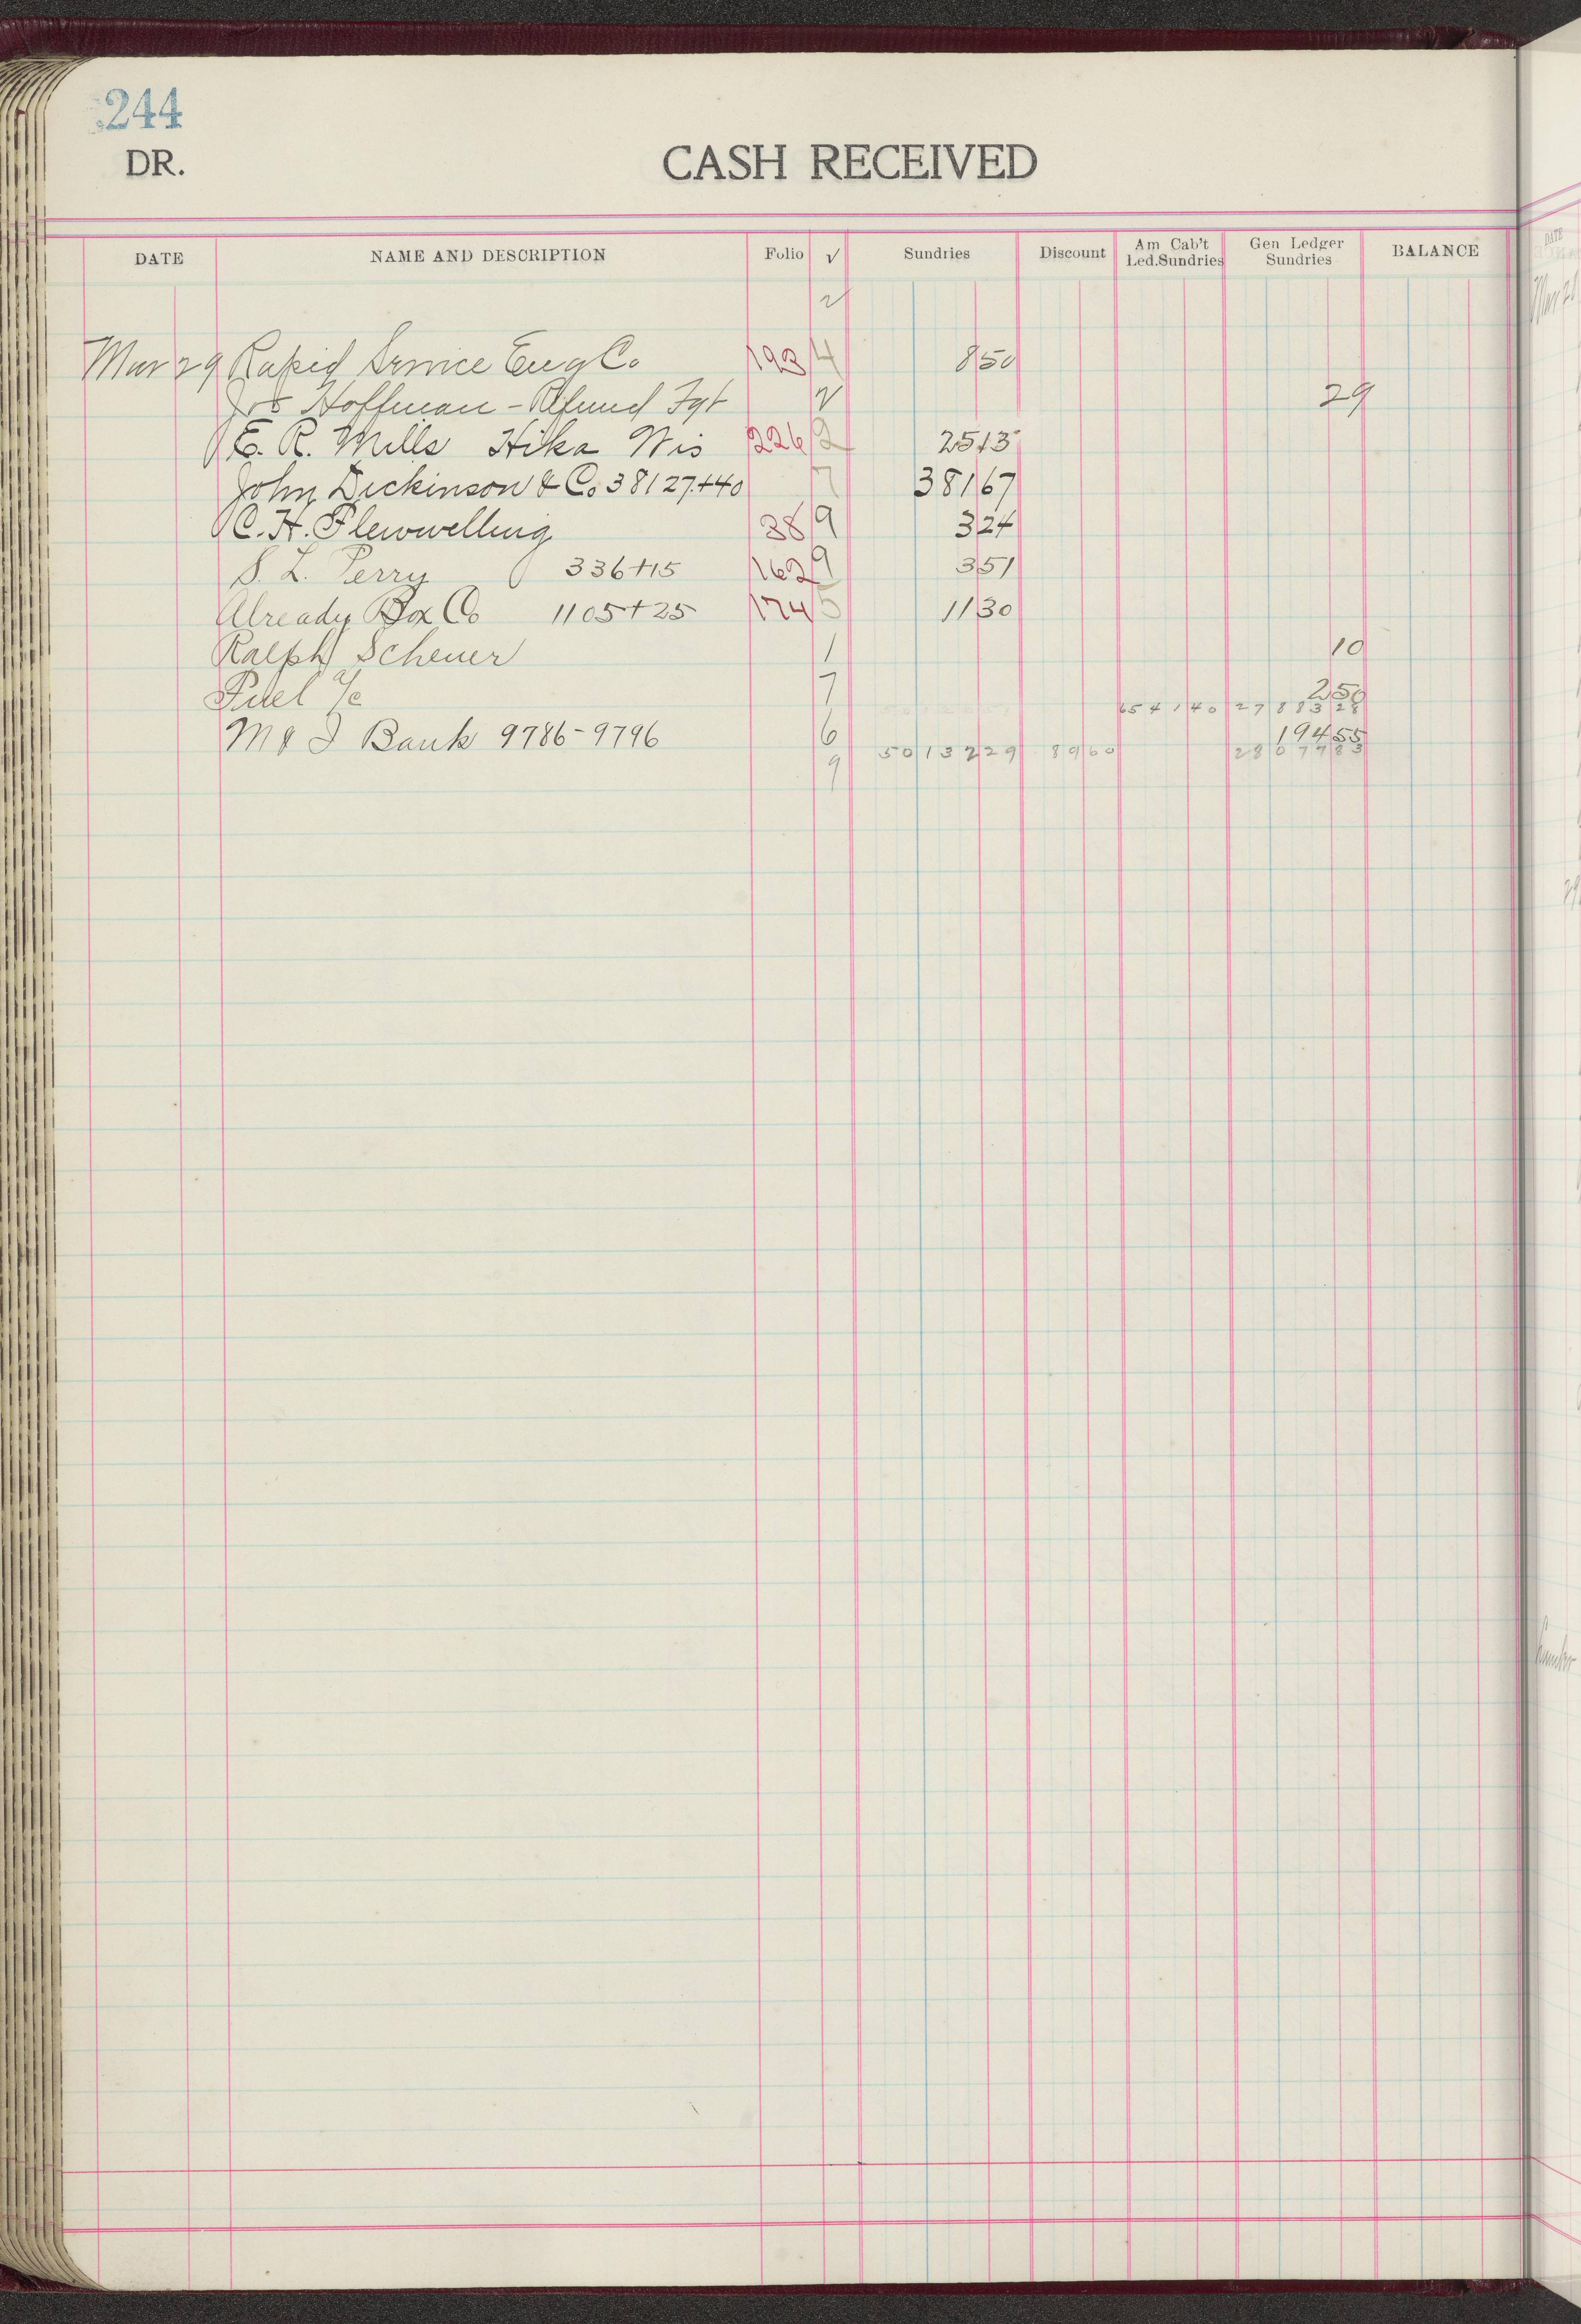 244
DR.
CASH RECEIVED
DATE NAME AND DESCRIPTION Folio √ Sundries Discount Am Cab't Led.Sundries Gen Ledger Sundries BALANCE
√
Mar 29 Rapid Service Eng Co 193 4 850
Jos Hoffman - Refund Fgt √ 29
E. R. Mills Hika Wis 226 2 2513
John Dickinson & Co 38127+40 7 38167
C. H. Flewwelling 38 9 324
S. L. Perry 336+15 162 9 351
Already Box Co 1105+25 174 5 1130
Ralph Scheuer 1 10
Fuel a/c 7 250
654140 2788328
M & I Bank 9786-9796 6 19455
9 5013229 8960 2807783